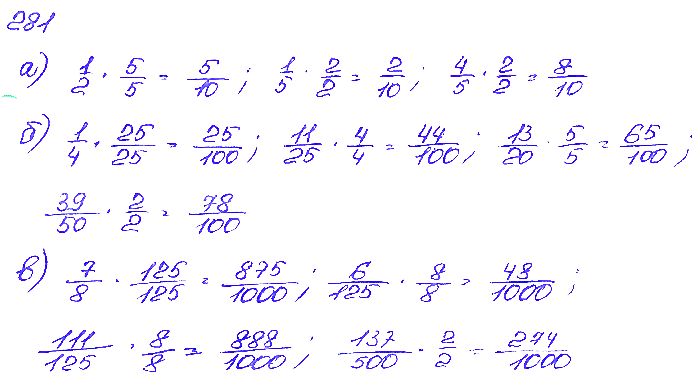 281
а) 1/2 · 5/5 = 5/10 ; 1/5 · 2/2 = 2/10 ; 4/5 · 2/2 = 8/10
б) 1/4 · 25/25 = 25/100 ; 11/25 · 4/4 = 44/100 ; 13/20 · 5/5 = 65/100 ;
39/50 · 2/2 = 78/100
в) 7/8 · 125/125 = 875/1000 ; 6/125 · 8/8 = 48/1000 ;
111/125 · 8/8 = 888/1000 ; 137/500 · 2/2 = 274/1000